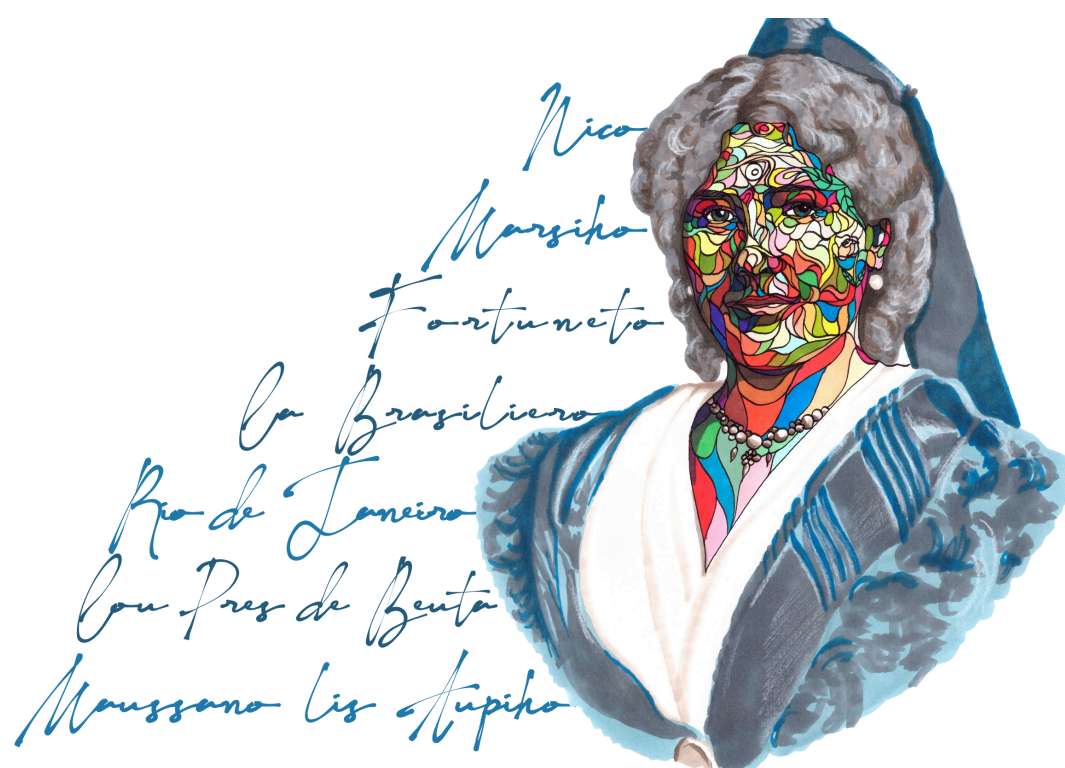 Niço
Marsiho
Fortuneto
la Brasiliero
Rio de Janeiro
lou Pres de Beuta
Maussano lis Aupiho